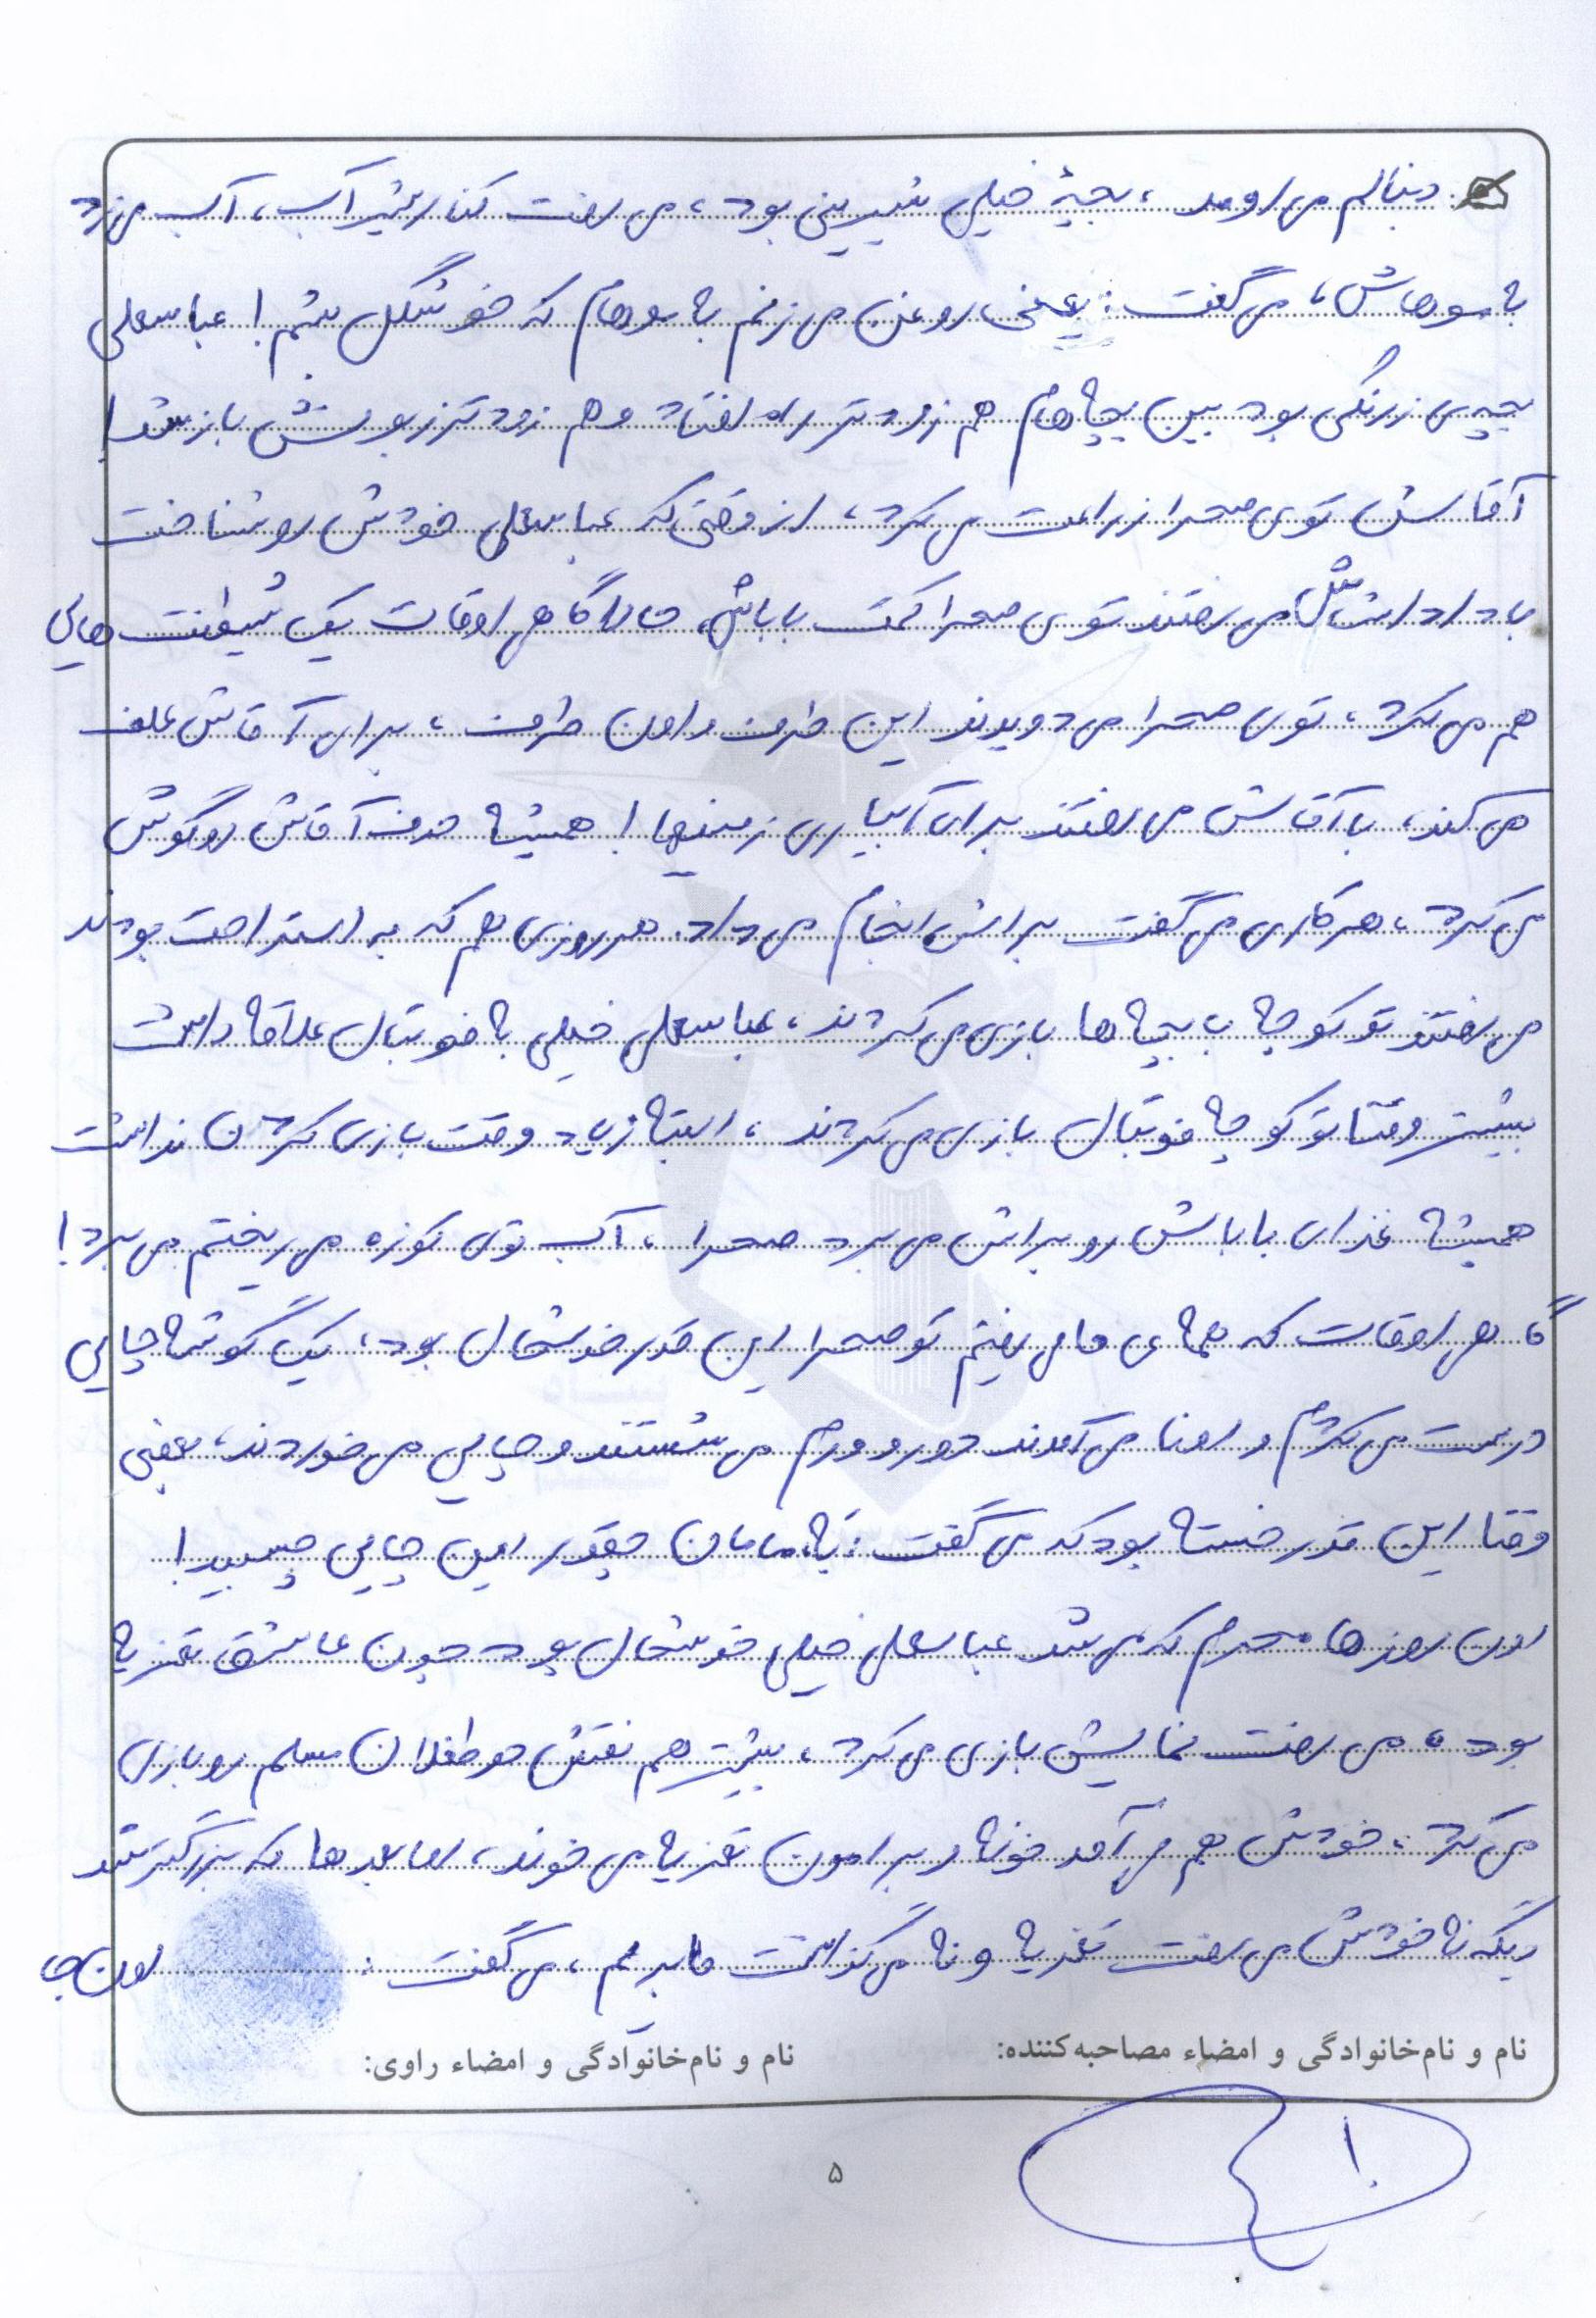 دنبالم می اومد، بچهٔ خیلی شیرینی بود، می رفت کنار شیر آب، آب می زد
به موهاش، می گفت: یعنی روغن می زنم به موهام که خوشگل بشم! عباسعلی
بچه ی زرنگی بود بین بچه هام هم زودتر راه افتاد و هم زودتر زبونش باز شد!
آقاش توی صحرا زراعت می کرد، از وقتی که عباسعلی خودش رو شناخت
با داداشاش می رفتند توی صحرا کمک باباش، حالا گاهی اوقات یک شیطنت هایی
هم می کرد، توی صحرا می دویدند این طرف و اون طرف، برای آقاش علف
می کند، با آقاش می رفتند برای آبیاری زمینها! همیشه حرف آقاش رو گوش
می کرد، هر کاری می گفت براش انجام می داد. هر روزی هم که به استراحت بودند
می رفتند تو کوچه با بچه ها بازی می کردند، عباسعلی خیلی به فوتبال علاقه داشت
بیشتر وقتا تو کوچه فوتبال بازی می کردند، البته زیاد وقت بازی کردن نداشت
همیشه غذای باباش رو براش می برد صحرا، آب توی کوزه می ریختم می برد!
گاهی اوقات که همه ی ما می رفتیم تو صحرا این قدر خوشحال بود، یک گوشه چایی
درست می کردم و اونا می آمدند دور و ورم می نشستند و چایی می خوردند، بعضی
وقتا این قدر خسته بود که می گفت: به، مامان چقدر این چایی چسبید!
اون روزها محرم که می شد عباسعلی خیلی خوشحال بود چون عاشق تعزیه
بود، می رفت نمایش بازی می کرد، بیشتر هم نقش دو طفلان مسلم رو بازی
می کرد، خودش هم می آمد خونه و برامون تعزیه می خوند، اما بعدها که بزرگتر شد
دیگه نه خودش می رفت تعزیه و نه می گذاشت ما بریم، می گفت: اون جا
نام و نام‌خانوادگی و امضاء مصاحبه‌کننده: نام و نام‌خانوادگی و امضاء راوی:
۵